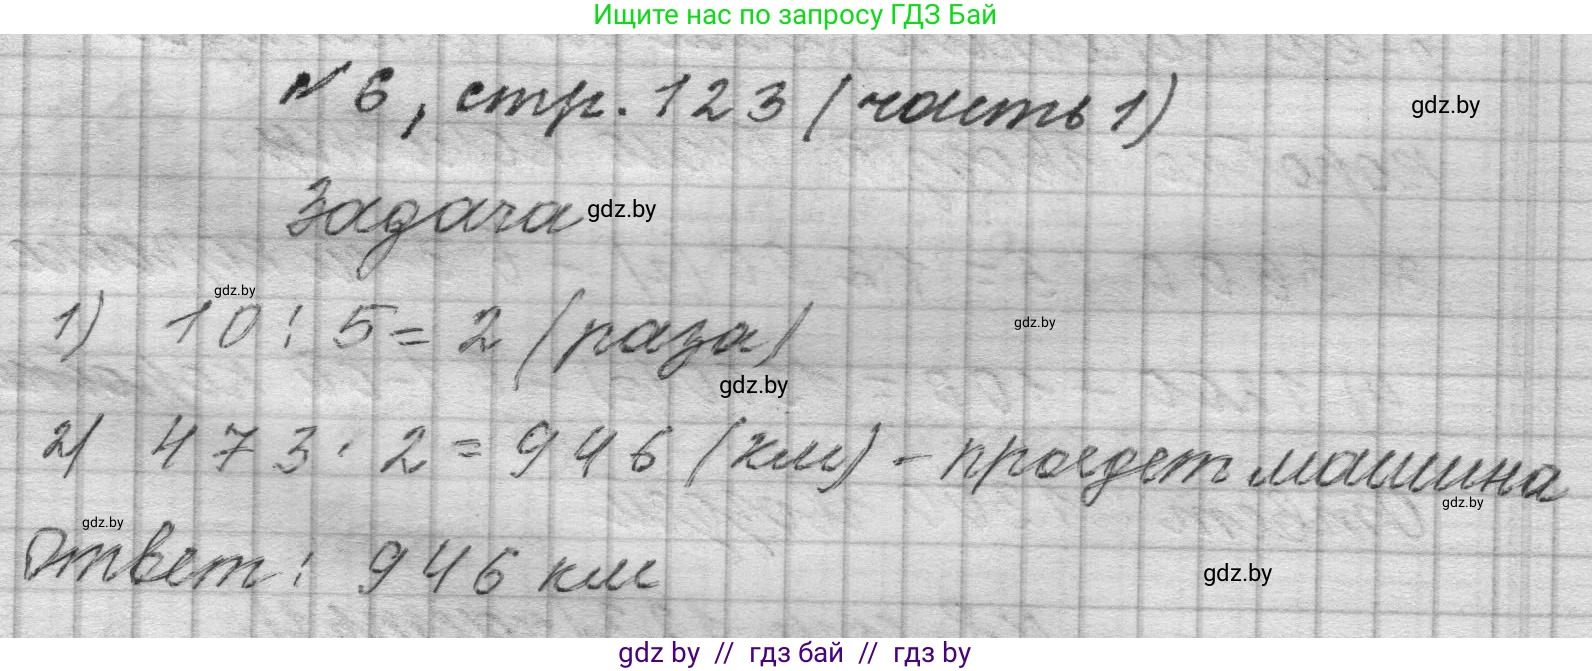 Ищите нас по запросу ГДЗ Бай
№ 6, стр. 123 (часть 1)
gdz.by
Задача
gdz.by
gdz.by
1) 10 : 5 = 2 (раза)
gdz.by
gdz.by
2) 473 · 2 = 946 (км) - проедет машина
gdz.by
gdz.by
Ответ: 946 км
gdz.by
gdz by // гдз бай // гдз by